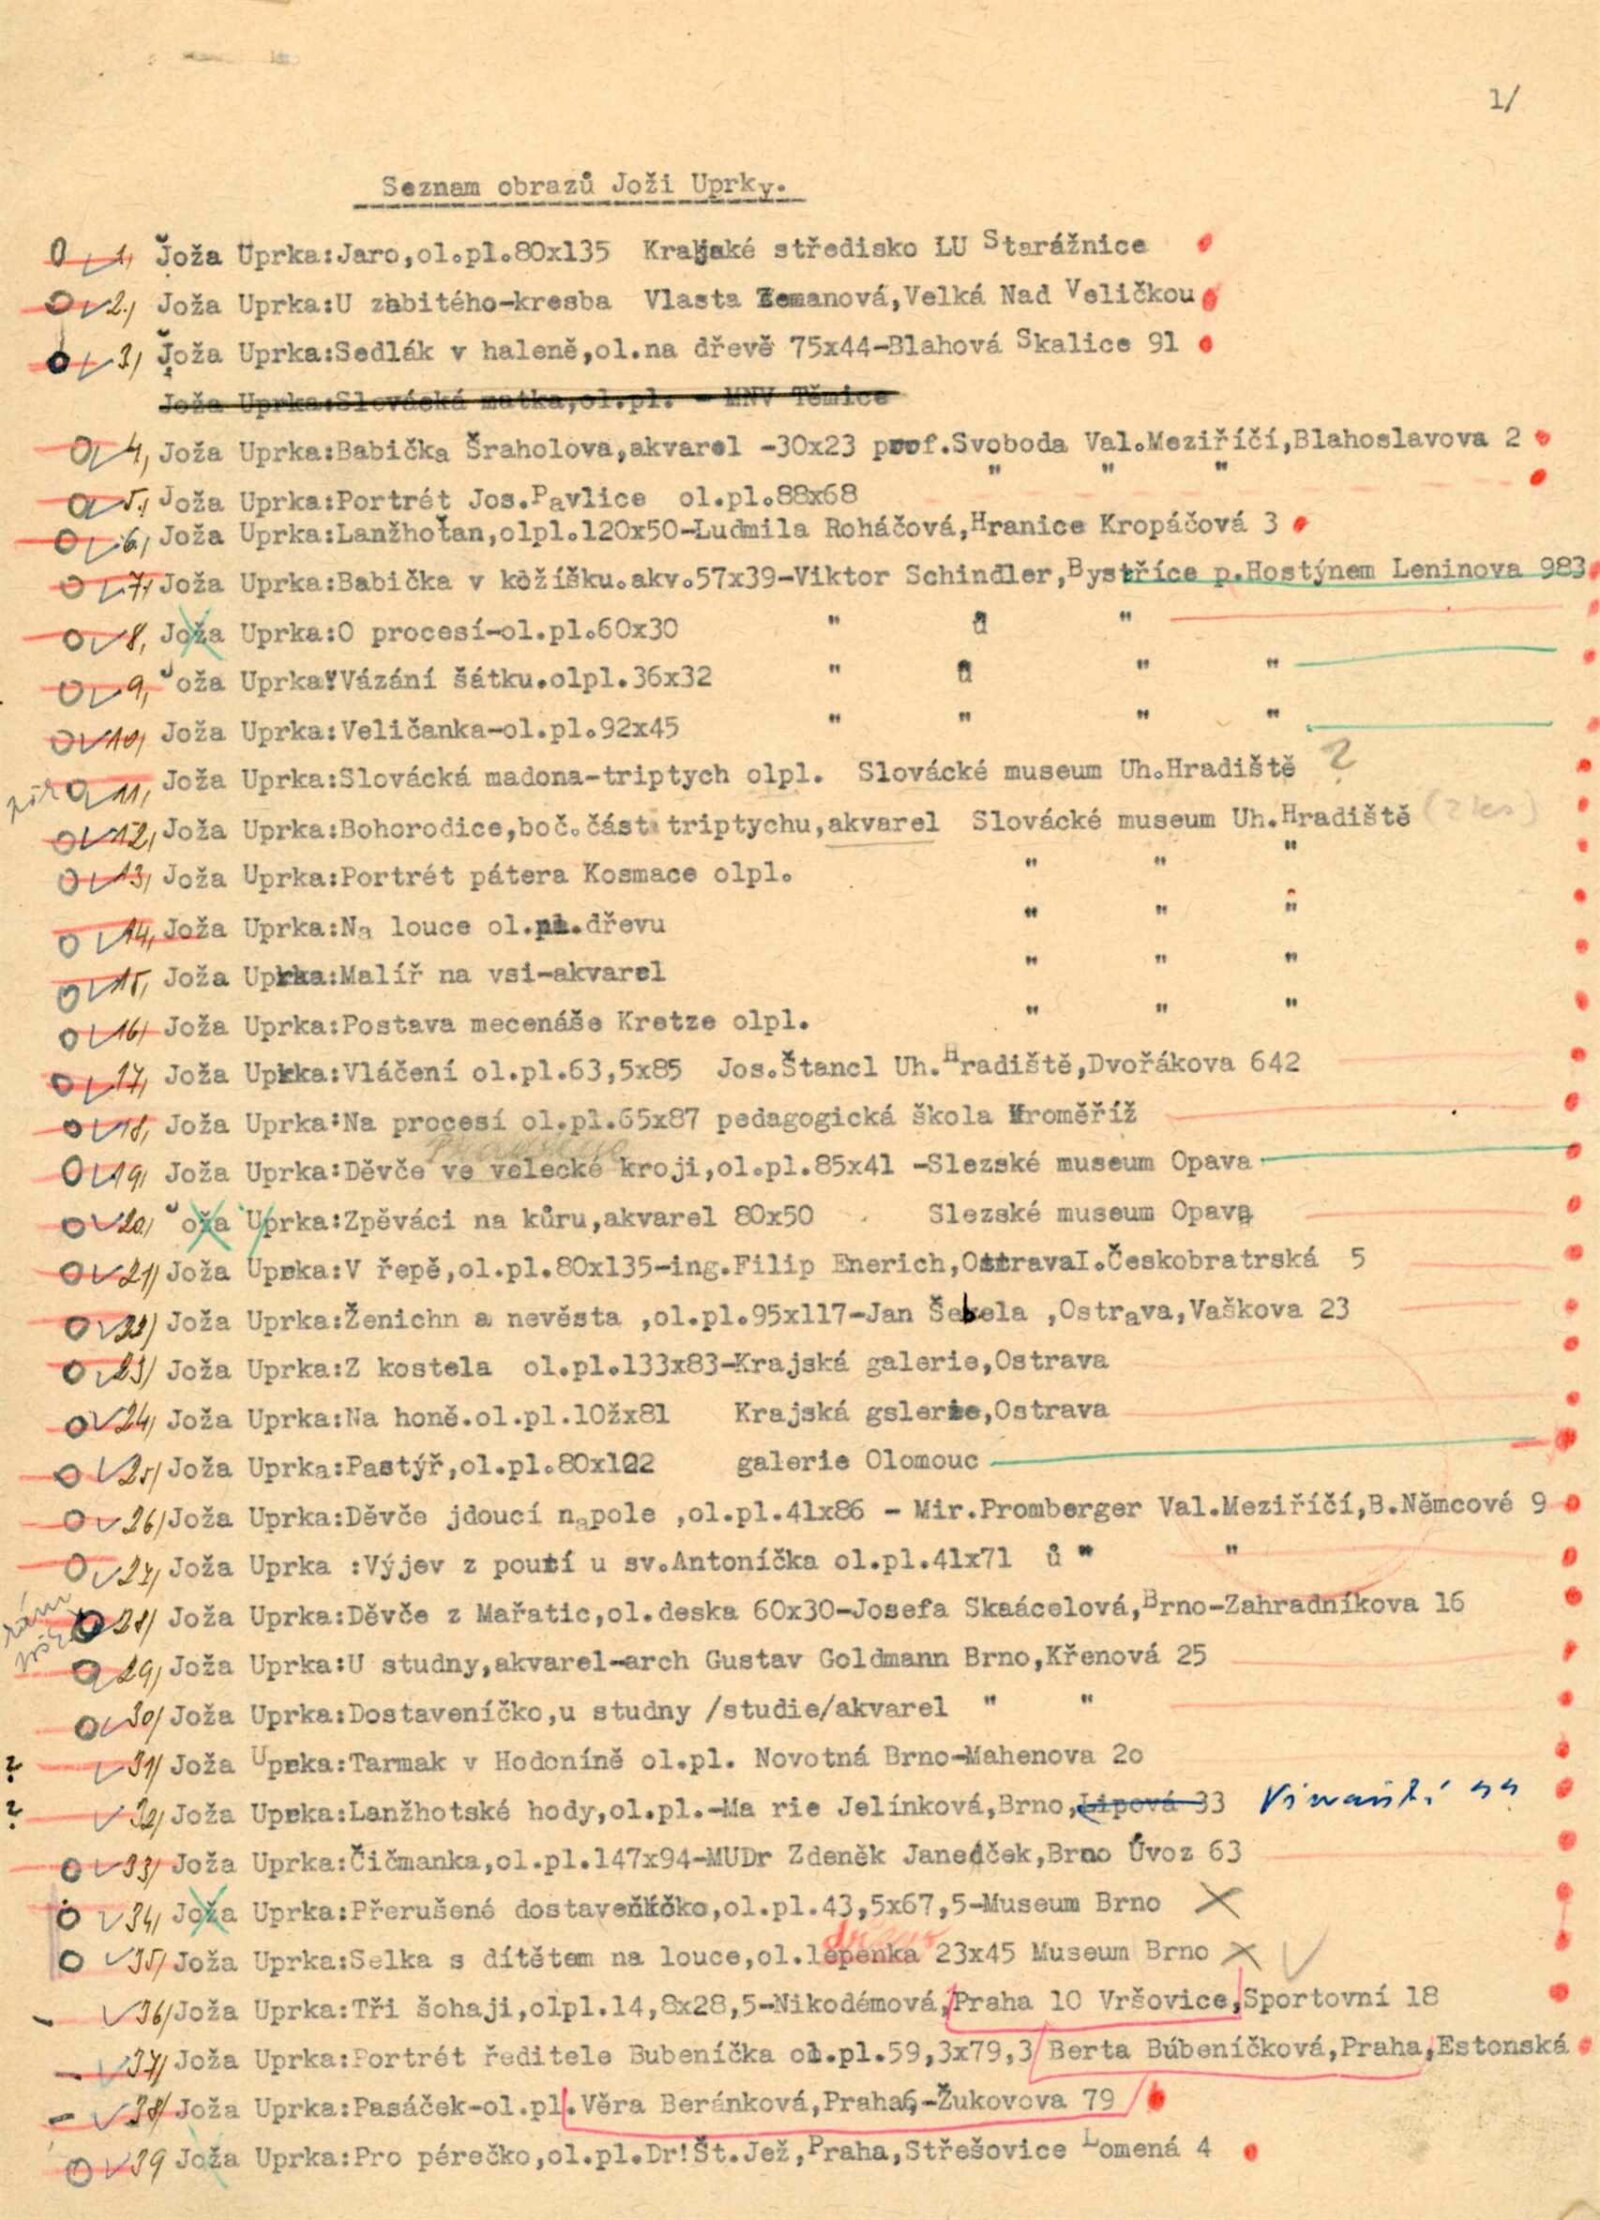 1/
Seznam obrazů Joži Uprky.
1, Joža Uprka:Jaro,ol.pl.80x135 Krajské středisko LU Starážnice
2., Joža Uprka:U zabitého-kresba Vlasta Zemanová,Velká Nad Veličkou
3, Joža Uprka:Sedlák v haleně,ol.na dřevě 75x44-Blahová Skalice 91
Joža Uprka:Slovácká matka,ol.pl. - MNV Těmice
4, Joža Uprka:Babička Šraholova,akvarel -30x23 prof.Svoboda Val.Meziříčí,Blahoslavova 2
5., Joža Uprka:Portrét Jos.Pavlice ol.pl.88x68 " " "
6, Joža Uprka:Lanžhoťan,olpl.120x50-Ludmila Roháčová,Hranice Kropáčová 3
7, Joža Uprka:Babička v kožíšku.akv.57x39-Viktor Schindler,Bystříce p.Hostýnem Leninova 983
8, Joža Uprka:O procesí-ol.pl.60x30 " " "
9, Joža Uprka:Vázání šátku.olpl.36x32 " " " "
10, Joža Uprka:Veličanka-ol.pl.92x45 " " " "
11, Joža Uprka:Slovácká madona-triptych olpl. Slovácké museum Uh.Hradiště ?
12, Joža Uprka:Bohorodice,boč.část triptychu,akvarel Slovácké museum Uh.Hradiště (2 ks)
13, Joža Uprka:Portrét pátera Kosmace olpl. " " "
14, Joža Uprka:Na louce ol.na.dřevu " " "
15, Joža Uprka:Malíř na vsi-akvarel " " "
16, Joža Uprka:Postava mecenáše Kretze olpl. " " "
17, Joža Uprka:Vláčení ol.pl.63,5x85 Jos.Štancl Uh.Hradiště,Dvořákova 642
18, Joža Uprka:Na procesí ol.pl.65x87 pedagogická škola Kroměříž
19, Joža Uprka:Děvče ve velecké kroji,ol.pl.85x41 -Slezské museum Opava
20, Joža Uprka:Zpěváci na kůru,akvarel 80x50 Slezské museum Opava
21, Joža Uprka:V řepě,ol.pl.80x135-ing.Filip Enerich,OstravaI.Českobratrská 5
22) Joža Uprka:Ženichn a nevěsta ,ol.pl.95x117-Jan Šebela ,Ostrava,Vaškova 23
23) Joža Uprka:Z kostela ol.pl.133x83-Krajská galerie,Ostrava
24, Joža Uprka:Na honě.ol.pl.10žx81 Krajská gslerie,Ostrava
25, Joža Uprka:Pastýř,ol.pl.80x122 galerie Olomouc
26, Joža Uprka:Děvče jdoucí napole ,ol.pl.41x86 - Mir.Promberger Val.Meziříčí,B.Němcové 9
27, Joža Uprka :Výjev z poutí u sv.Antoníčka ol.pl.41x71 ů " "
28) Joža Uprka:Děvče z Mařatic,ol.deska 60x30-Josefa Skaácelová,Brno-Zahradníkova 16
29, Joža Uprka:U studny,akvarel-arch Gustav Goldmann Brno,Křenová 25
30, Joža Uprka:Dostaveníčko,u studny /studie/akvarel " "
? 31, Joža Uprka:Tarmak v Hodoníně ol.pl. Novotná Brno-Mahenova 2o
? 32, Joža Uprka:Lanžhotské hody,ol.pl.-Ma rie Jelínková,Brno,Lipová 33
33, Joža Uprka:Čičmanka,ol.pl.147x94-MUDr Zdeněk Janeáček,Brno Úvoz 63
34, Joža Uprka:Přerušené dostaveníčko,ol.pl.43,5x67,5-Museum Brno
35, Joža Uprka:Selka s dítětem na louce,ol.lepenka 23x45 Museum Brno
36, Joža Uprka:Tři šohaji,olpl.14,8x28,5-Nikodémová,Praha 10 Vršovice,Sportovní 18
37, Joža Uprka:Portrét ředitele Bubeníčka ol.pl.59,3x79,3 Berta Búbeníčková,Praha,Estonská
38, Joža Uprka:Pasáček-ol.pl.Věra Beránková,Praha6,-Žukovova 79
39 Joža Uprka:Pro pérečko,ol.pl.Dr!Št.Jež,Praha,Střešovice Lomená 4